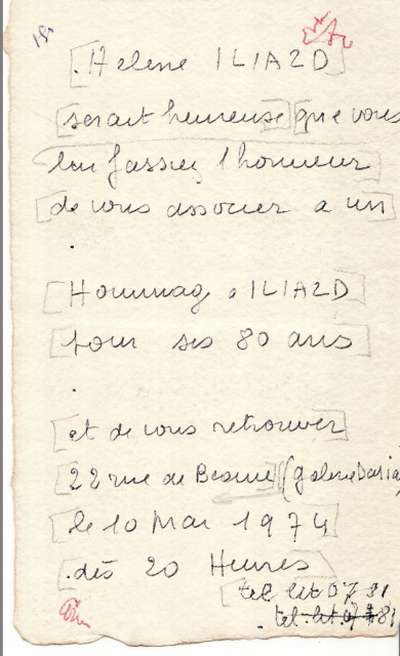 18.
.Helene ILIAZD
serait heureuse que vous
lui fassiez l'honneur
de vous associer a un
.
Hommage a ILIAZD
pour ses 80 ans
.
et de vous retrouver
22 rue de Beaune (galerie Darial
le 10 Mai 1974
.dès 20 Heures
tel lit 07 81
. tel. lit. 07 81